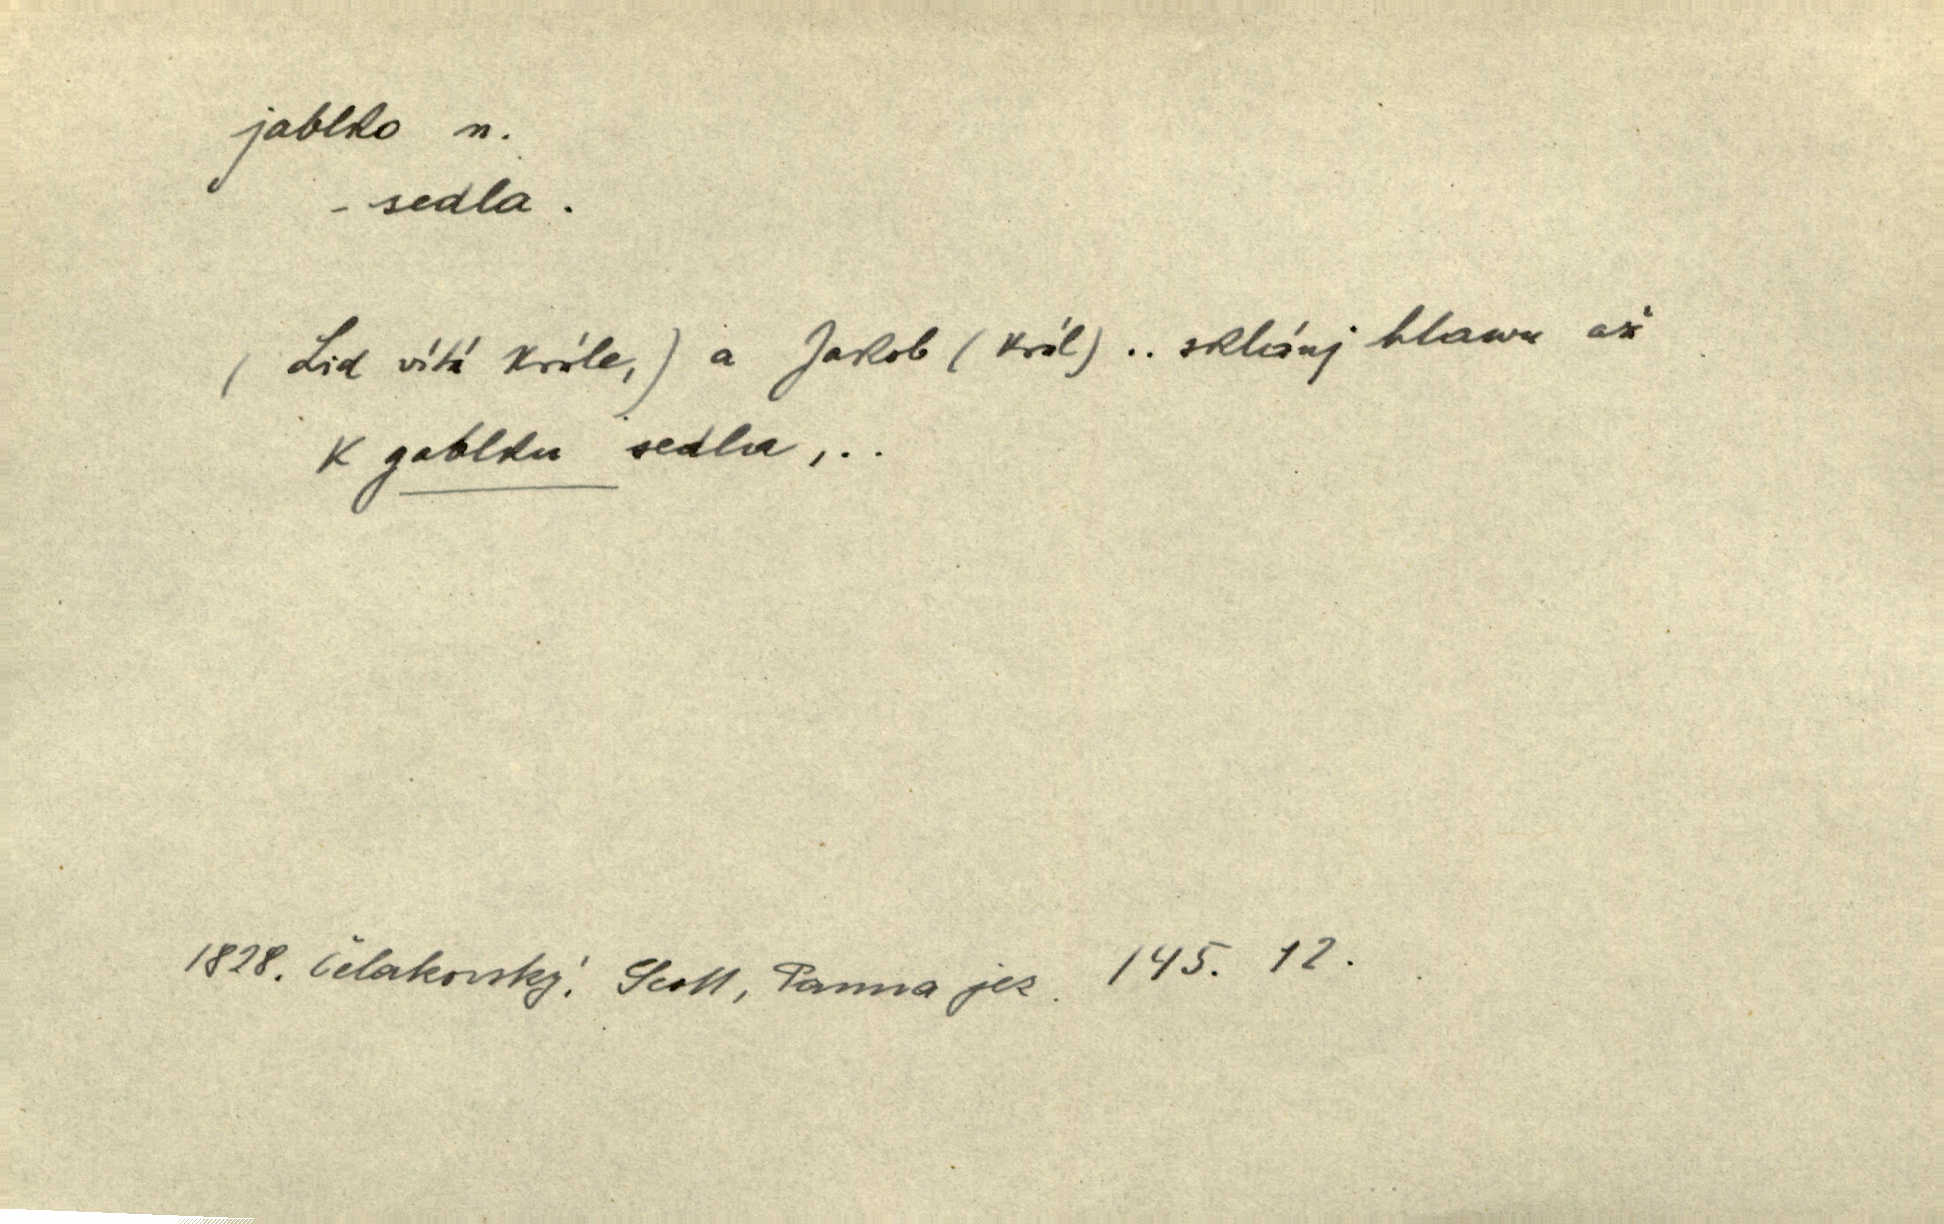 jablko n.
- sedla .
( Lid vítá krále, ) a Jakob ( král ) .. skláněj hlawu až
k gablku sedla , . .
1828. Čelakovský: Scott, Panna jez. 145. 12.